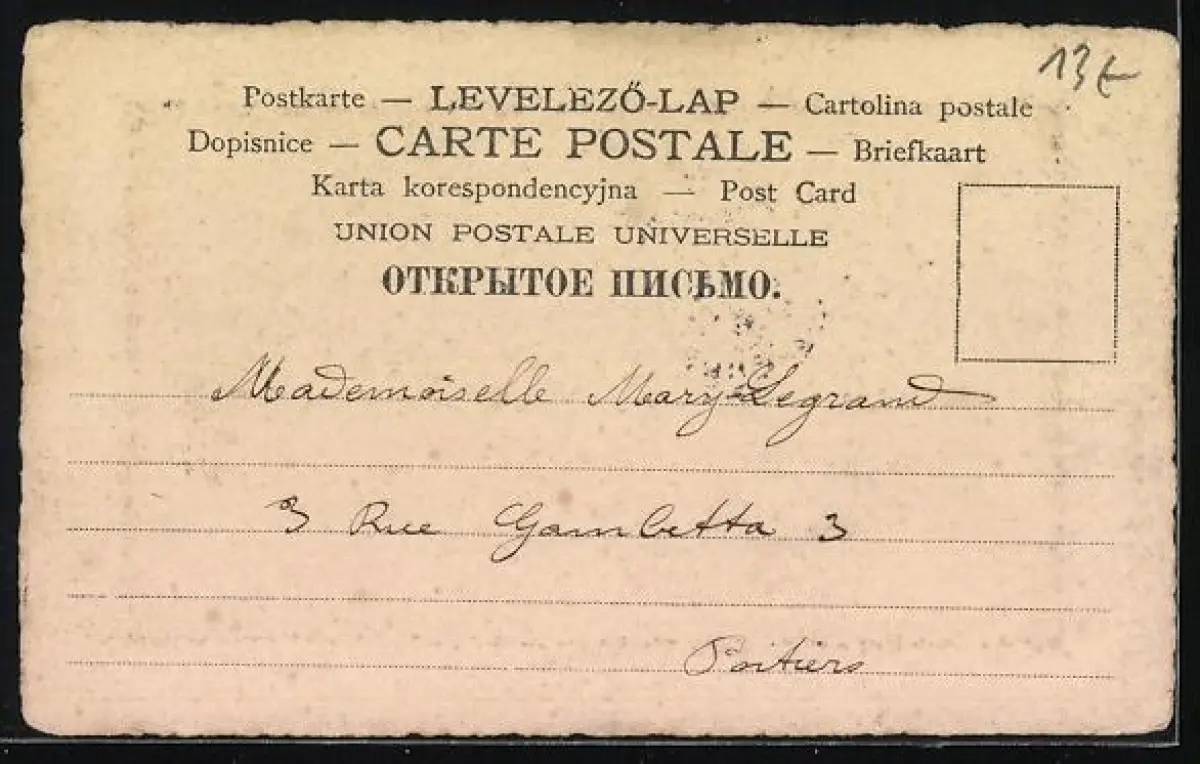 13€
Postkarte — LEVELEZŐ-LAP — Cartolina postale
Dopisnice — CARTE POSTALE — Briefkaart
Karta korespondencyjna — Post Card
UNION POSTALE UNIVERSELLE
ОТКРЫТОЕ ПИСЬМО.
Mademoiselle Mary Legrand
3 Rue Gambetta 3
Poitiers